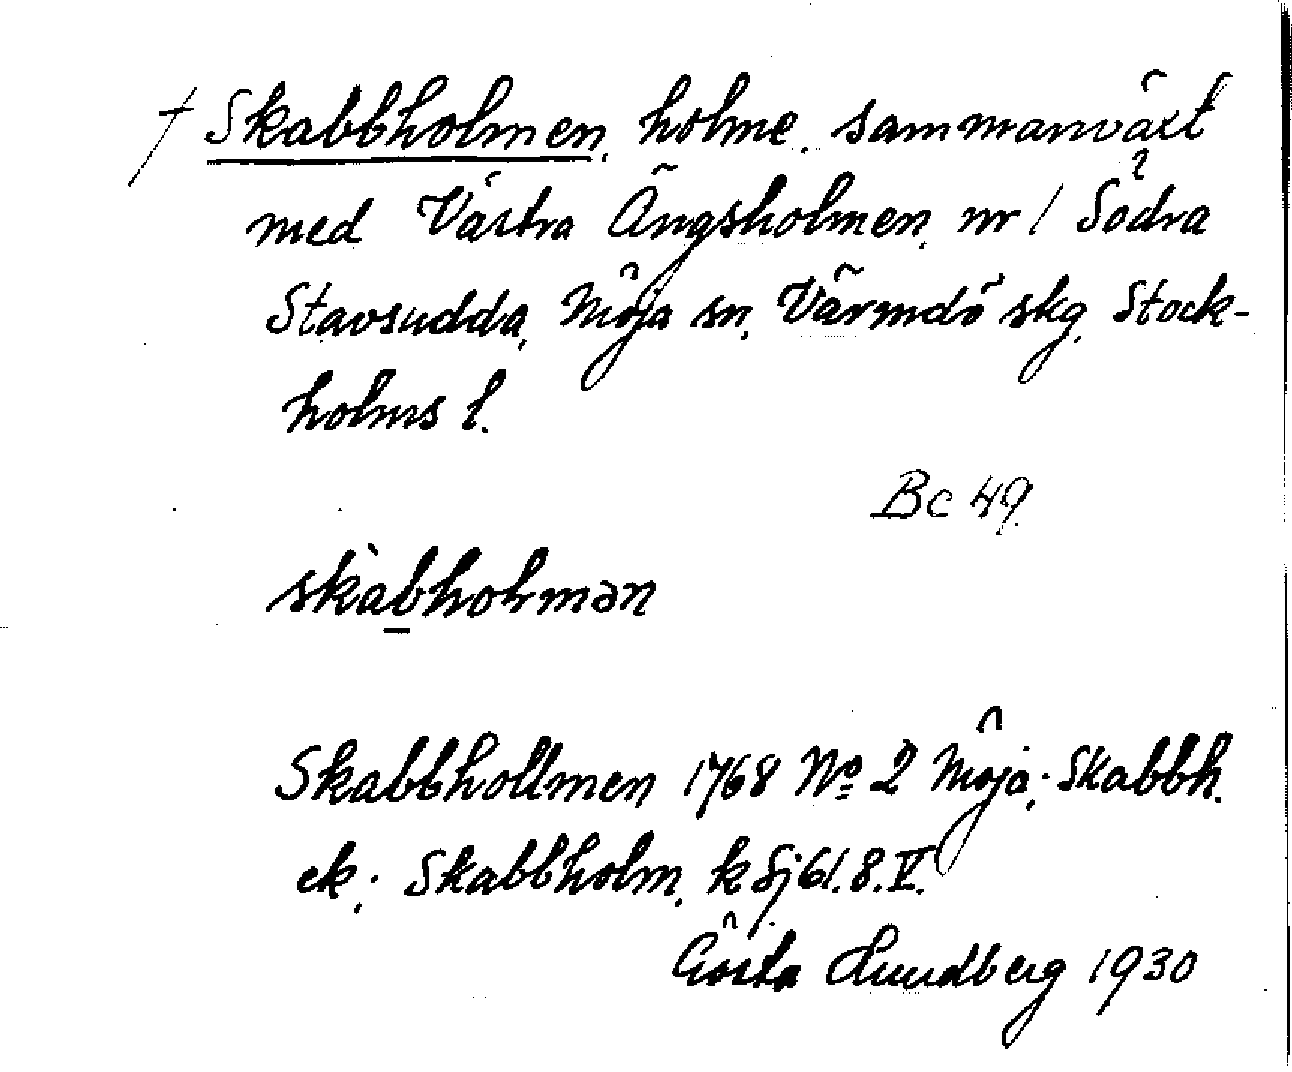 † Skabbholmen, holme, sammanväxt
med Västra Ängsholmen, nr 1 Södra
Stavsudda, Möja sn, Värmdö skg, Stock-
holms l.
Bc 49
skàbholmən
Skabbhollmen 1768 No 2 Möja; Skabbh.
ek; Skabbholm, k Sj 61.8.V.
Gösta Lundberg 1930